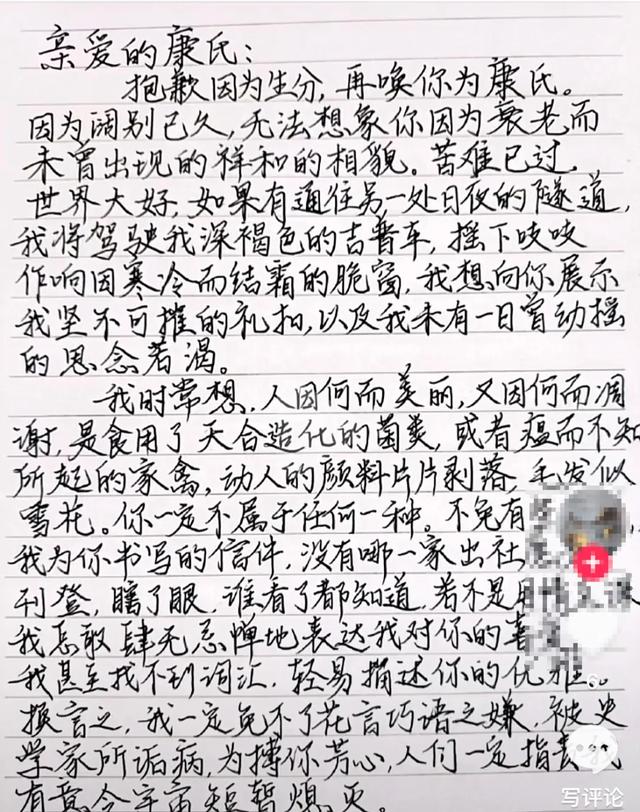 亲爱的康氏：
抱歉因为生分，再唤你为康氏。
因为阔别已久，无法想象你因为衰老而
未曾出现的祥和的相貌。苦难已过，
世界大好，如果有通往另一处日夜的隧道，
我将驾驶我深褐色的吉普车，摇下吱吱
作响因寒冷而结霜的脆窗，我想向你展示
我坚不可摧的礼扣，以及我未有一日曾动摇
的思念若渴。
我时常想，人因何而美丽，又因何而凋
谢，是食用了天合造化的菌类，或者瘟而不知
所起的家禽，动人的颜料片片剥落，毛发似
雪花。你一定不属于任何一种。不免有
我为你书写的信件，没有哪一家出社
刊登，瞎了眼，谁看了都知道，若不是用情
我怎敢肆无忌惮地表达我对你的喜
我甚至找不到词汇，轻易描述你的优雅。
换言之，我一定免不了花言巧语之嫌，被史
学家所诟病，为搏你芳心，人们一定指责我
有意令宇宙短暂熄灭。
写评论